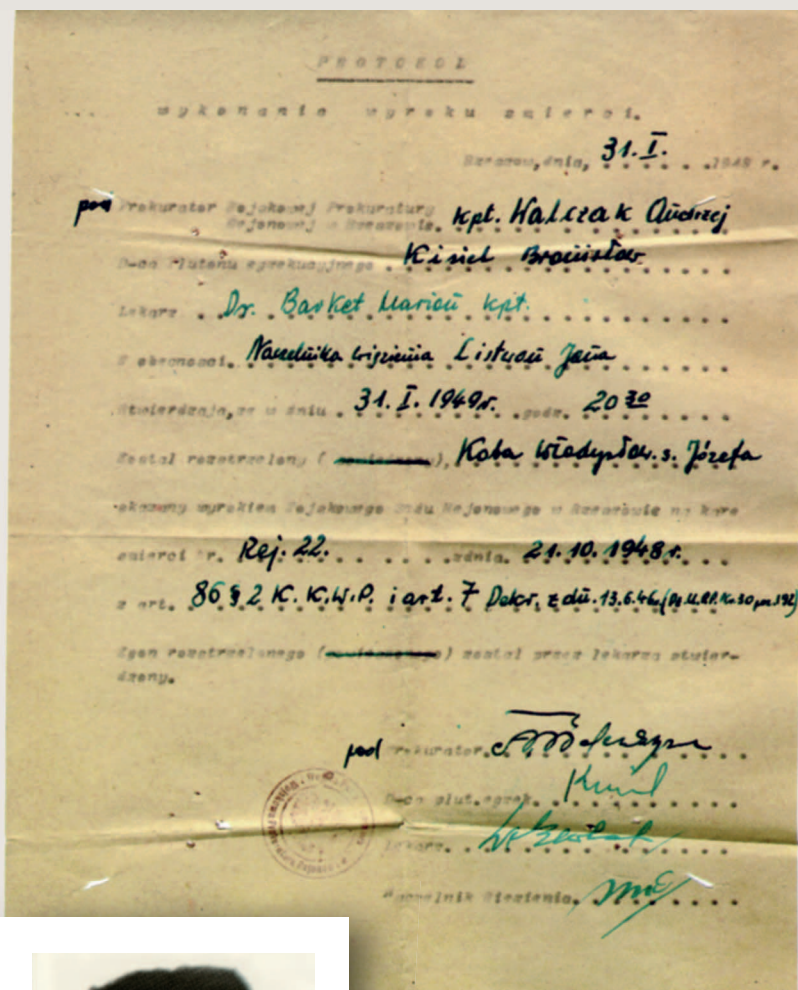 PROTOKOŁ
wykonania wyroku śmierci.
Rzeszow, dnia, 31.I. 1949 r.
pod Prokurator Wojskowej Prokuratury
Rejonowej w Rzeszowie. kpt. Walczak Andrzej
D-ca Plutonu egzekucyjnego Kisiel Bronisław
Lekarz Dr. Barket Marian kpt.
W obecnosci. Naczelnika więzienia Listwan Jana
Stwierdzaja, ze w dniu 31.I.1949r. godz. 20 30
Zostal rozstrzelany ( ), Koba Władysław. s. Józefa
skazany wyrokiem Wojskowego Sadu Rejonowego w Rzeszowie na kare
smierci Nr. Rej. 22. zdnia. 21.10.1948r.
z art. 86 § 2 K.K.W.P. i art. 7 Dekr. z dn. 13.6.46.
Zgon rozstrzelanego ( ) zostal przez lekarza stwier-
dzony.
pod Prokurator.
D-ca plut. egzek.
Lekarz.
Naczelnik Wiezienia.